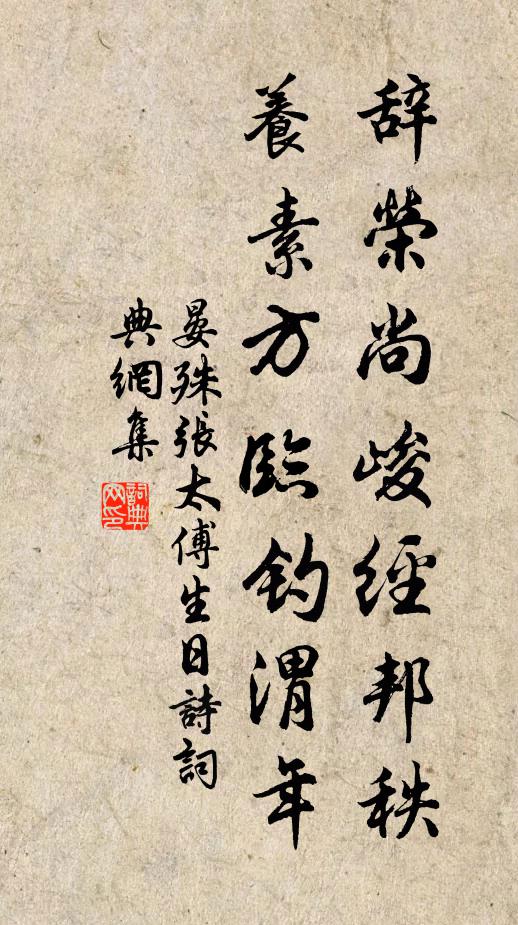 辞榮尚峻經邦秩
養素方臨釣渭年
晏殊張太傅生日詩詞
典網集
詞典
网印